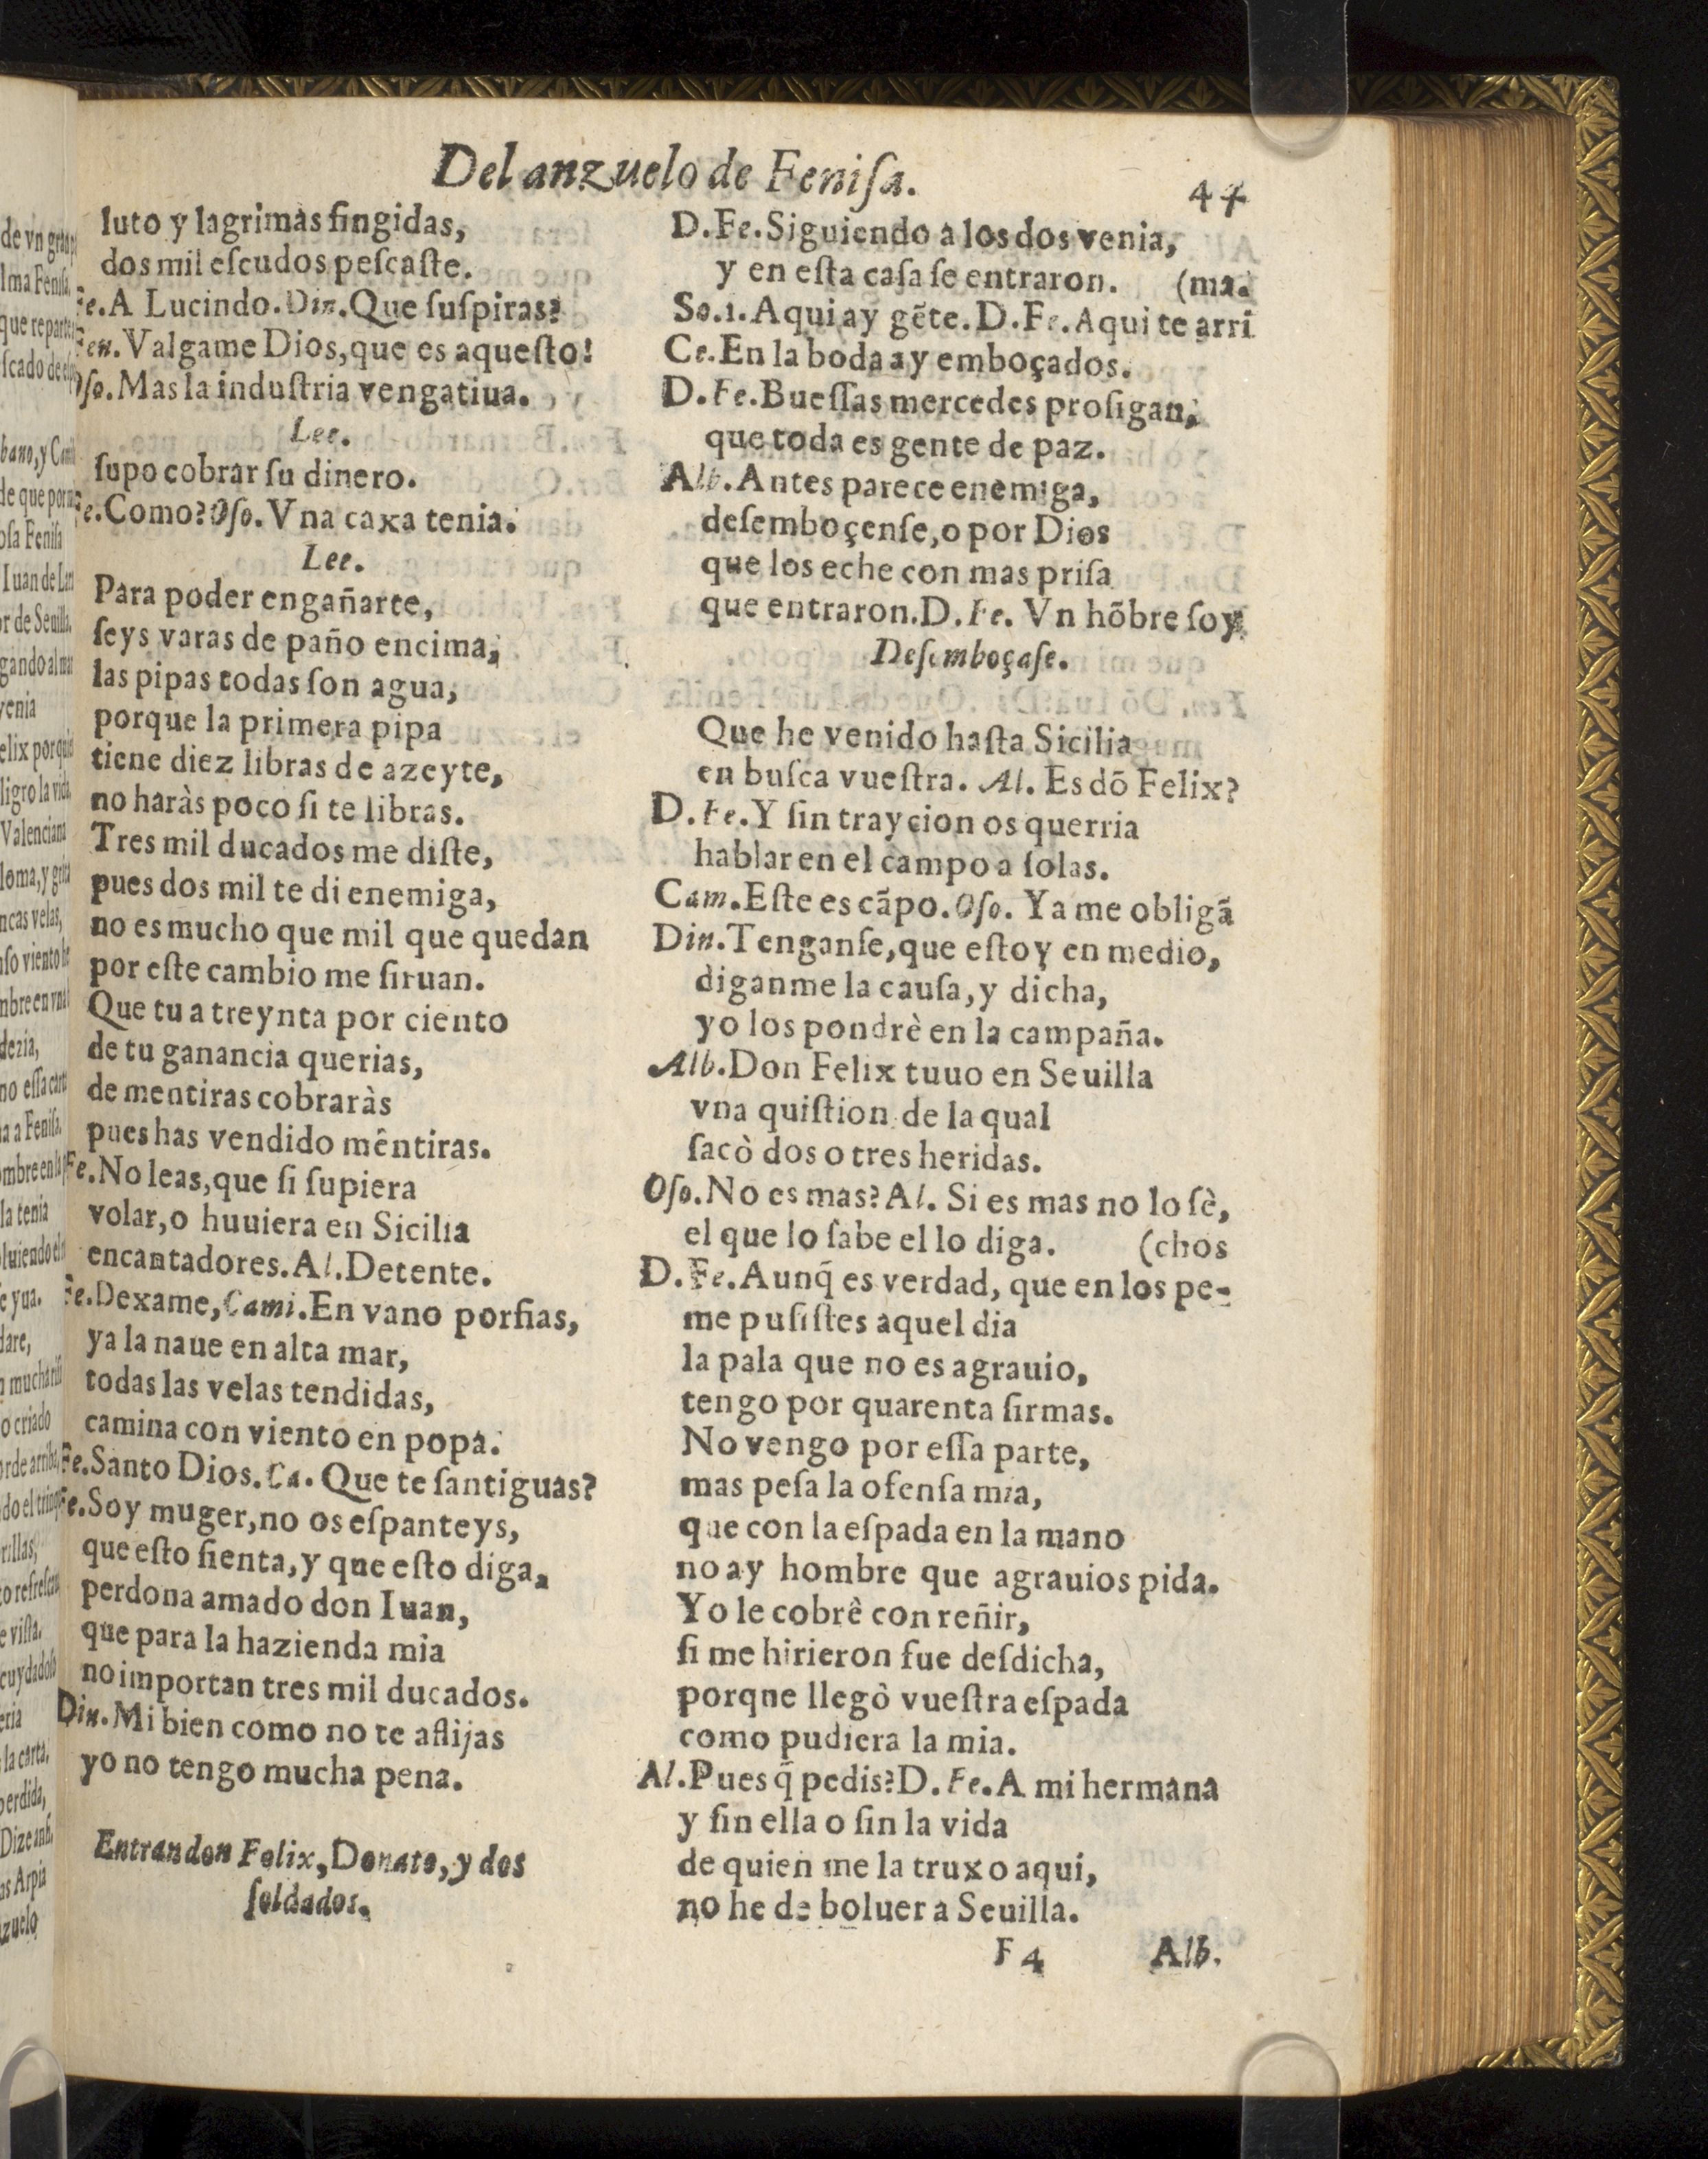 Del anzuelo de Feniſa.
44
luto y lagrimas fingidas,
dos mil eſcudos peſcaſte.
Fe.A Lucindo.Din.Que ſuſpiras?
Fen.Valgame Dios,que es aqueſto!
Oſo.Mas la induſtria vengatiua.
Lee.
ſupo cobrar ſu dinero.
Fe.Como?Oſo.Vna caxa tenia.
Lee.
Para poder engañarte,
ſeys varas de paño encima,
las pipas todas ſon agua,
porque la primera pipa
tiene diez libras de azeyte,
no haràs poco ſi te libras.
Tres mil ducados me diſte,
pues dos mil te di enemiga,
no es mucho que mil que quedan
por eſte cambio me ſiruan.
Que tu a treynta por ciento
de tu ganancia querias,
de mentiras cobraràs
pues has vendido mêntiras.
Fe.No leas,que ſi ſupiera
volar,o huuiera en Sicilia
encantadores.Al.Detente.
Fe.Dexame,Cami.En vano porfias,
ya la naue en alta mar,
todas las velas tendidas,
camina con viento en popa.
Fe.Santo Dios.Ca.Que te ſantiguas?
Fe.Soy muger,no os eſpanteys,
que eſto ſienta,y que eſto diga,
perdona amado don Iuan,
que para la hazienda mia
no importan tres mil ducados.
Din.Mi bien como no te aflijas
yo no tengo mucha pena.
Entran don Felix,Donato,y dos
ſoldados.
D.Fe.Siguiendo a los dos venia,
y en eſta caſa ſe entraron. (ma.
So.1.Aqui ay gẽte.D.Fe.Aqui te arri
Ce.En la boda ay emboçados.
D.Fe.Bueſſas mercedes proſigan,
que toda es gente de paz.
Alb.Antes parece enemiga,
deſemboçenſe,o por Dios
que los eche con mas priſa
que entraron.D.Fe. Vn hõbre ſoy
Deſemboçaſe.
Que he venido haſta Sicilia
en buſca vueſtra. Al. Es dõ Felix?
D.Fe.Y ſin traycion os querria
hablar en el campo a ſolas.
Cam.Eſte es cãpo.Oſo. Ya me obligã
Din.Tenganſe,que eſtoy en medio,
diganme la cauſa,y dicha,
yo los pondrè en la campaña.
Alb.Don Felix tuuo en Seuilla
vna quiſtion de la qual
ſacò dos o tres heridas.
Oſo.No es mas?Al. Si es mas no lo ſè,
el que lo ſabe el lo diga. (chos
D.Fe.Aunq̃ es verdad, que en los pe-
me puſiſtes aquel dia
la pala que no es agrauio,
tengo por quarenta firmas.
No vengo por eſſa parte,
mas peſa la ofenſa mia,
que con la eſpada en la mano
no ay hombre que agrauios pida.
Yo le cobrè con reñir,
ſi me hirieron fue deſdicha,
porqne llegò vueſtra eſpada
como pudiera la mia.
Al.Pues q̃ pedis?D.Fe.A mi hermana
y ſin ella o ſin la vida
de quien me la truxo aqui,
no he de boluer a Seuilla.
F 4
Alb.